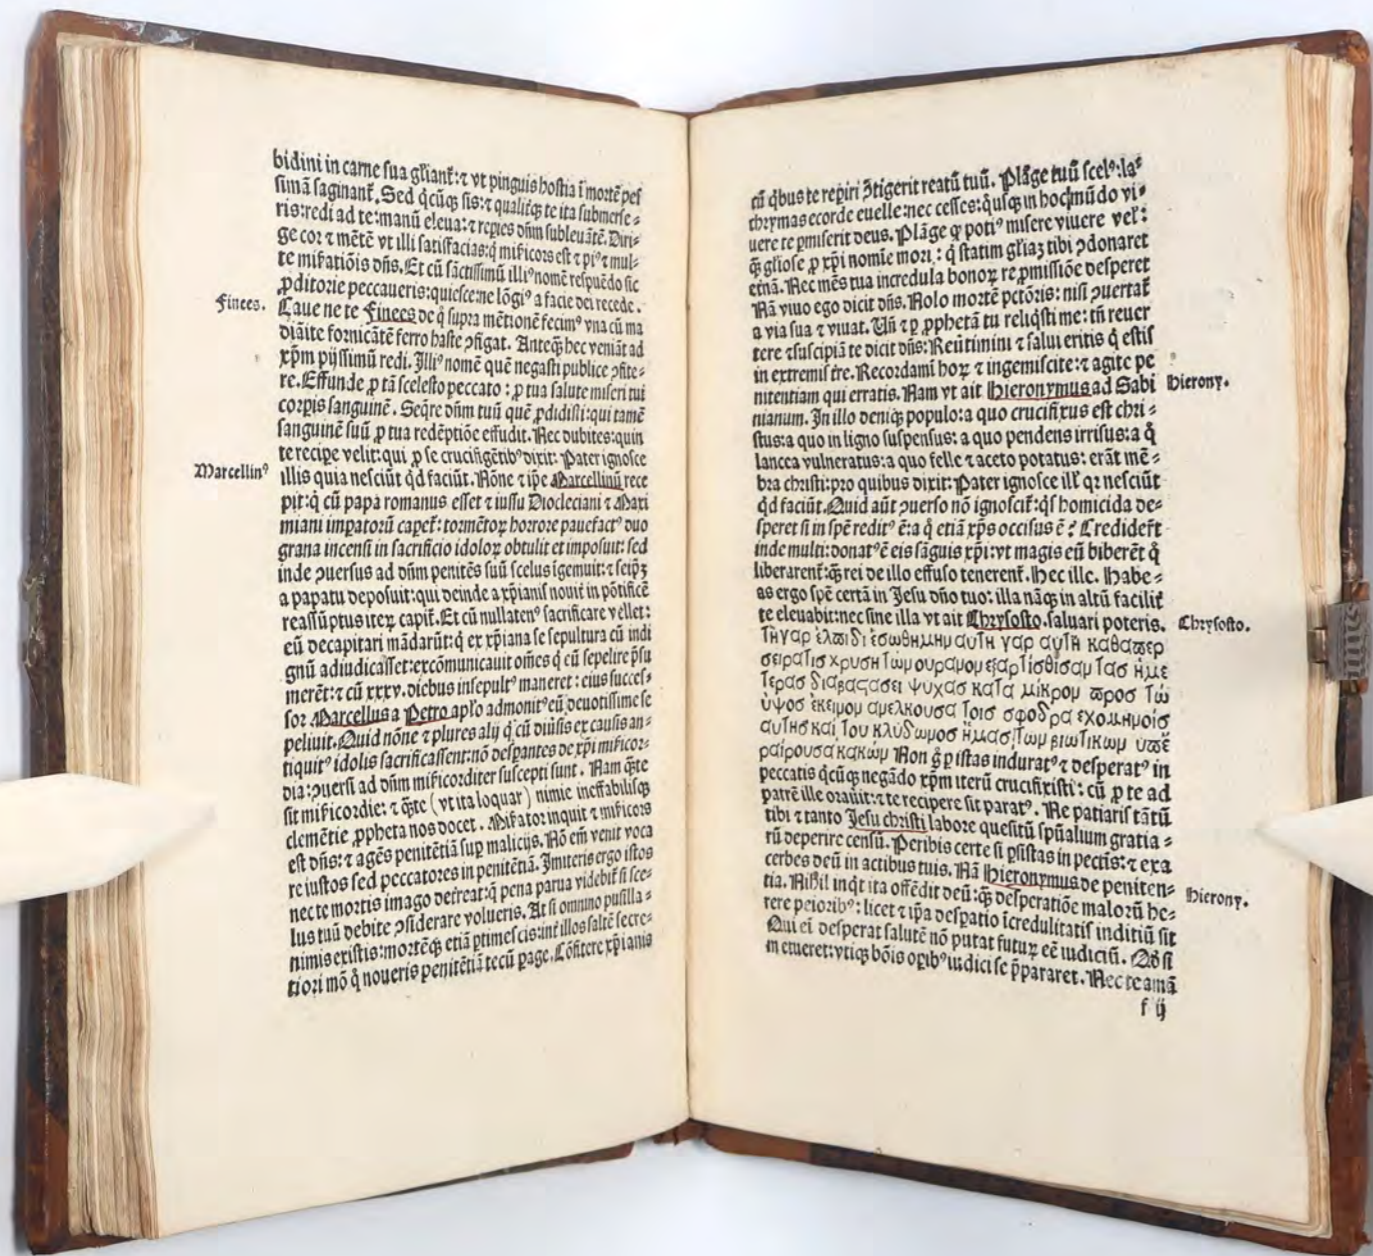 bidini in carne sua gl̃iant̃: ⁊ vt pinguis hostia ĩ mortẽ pes
simã saginant̃. Sed q̇cũq̃ sis: ⁊ qualitq̃ te ita submerse⸗
ris: redi ad te: manũ eleua: ⁊ rep̱ies dñm subleuãtẽ. Diri⸗
ge cor ⁊ mẽtẽ vt illi satisfacias: q̇ mĩcors est ⁊ piꝰ ⁊ mul⸗
te mĩatiõis dñs. Et cũ sãctissimũ illiꝰ nomẽ respuẽdo sic
ꝓditorie peccaueris: quiesce: ne lõgiꝰ a facie dei recede.
Finees.
Caue ne te Finees de q̇ supra mẽtionẽ fecimꝰ vna cũ ma
diãite fornicãtẽ ferro haste ꝯfigat. Anteq̃ȝ hec veniãt ad
xp̃m pijssimũ redi. Illiꝰ nomẽ quẽ negasti publice ꝯfite⸗
re. Effunde ꝓ tã scelesto peccato: ꝓ tua salute miseri tui
corꝑis sanguinẽ. Seq̃re dñm tuũ quẽ ꝓdidisti: qui tamẽ
sanguinẽ suũ ꝓ tua redẽptiõe effudit. Nec dubites: quin
te reciꝑe velit: qui ꝓ se crucifigẽtibꝰ dixit: Pater ignosce
Marcellinꝰ
illis quia nesciũt q̇d faciũt. Nõne ⁊ ip̃e Marcellinũ rece
pit: q̇ cũ papa romanus esset ⁊ iussu Diocleciani ⁊ Maxi
miani imꝑatorũ capet̃: tormẽtoꝝ horrore pauefactꝰ duo
grana incensi in sacrificio idoloꝝ obtulit et imposuit: sed
inde ꝯuersus ad dñm penitẽs suũ scelus ĩgemuit: ⁊ seip̃ȝ
a papatu deposuit: qui deinde a xp̃ianis nouit in põtificẽ
reassũptus iteꝝ capit̃. Et cũ nullatenꝰ sacrificare vellet:
eũ decapitari mãdarũt: q̇ ex xp̃iana se sepultura cũ indi
gnũ adiudicasset: excõmunicauit om̃es q̇ cũ sepelire p̃su
merẽt: ⁊ cũ xxxv. diebus insepultꝰ maneret: eius succes⸗
sor Marcellus a Petro aplo admonitꝰ eũ deuotissime se
peliuit. Quid nõne ⁊ plures alij q̇ cũ diũsis ex causis an⸗
tiquitꝰ idolis sacrificassent: nõ desꝑantes de xp̃i mĩcor⸗
dia: ꝯuersi ad dñm mĩcorditer suscepti sunt. Nam q̃te
sit mĩcordie: ⁊ q̃te (vt ita loquar) nimie ineffabilisq̃
clemẽtie ꝓpheta nos docet. Mĩator inquit ⁊ mĩcors
est dñs: ⁊ agẽs penitẽtiã suꝑ malicijs. Nõ em̃ venit voca
re iustos sed peccatores in penitẽtiã. Imiteris ergo istos
nec te mortis imago deterreat: q̇ pena parua videbit̃ si sce⸗
lus tuũ debite ꝯsiderare volueris. At si omnino pusilla⸗
nimis existis: mortẽq̃ etiã ꝑtimescis: int̃ illos saltẽ secre⸗
tiori mõ q̇ noueris penitẽtiã tecũ ꝑage. Cõfitere xp̃ianis
cũ q̇bus te reꝑiri ꝯtigerit reatũ tuũ. Plãge tuũ scelꝰ: la⸗
chrymas ecorde euelle: nec cesses: q̇usq̃ in hoc mũdo vi⸗
uere te ꝑmiserit deus. Plãge ꝙ potiꝰ misere viuere vel̃:
q̃ȝ gl̃iose ꝓ xp̃i nomĩe mori: q̇ statim gl̃iaȝ tibi ꝯdonaret
etnã. Nec mẽs tua incredula bonoꝝ reꝓmissiõe desperet
Nã viuo ego dicit dñs. Nolo mortẽ pctõris: nisi ꝯuertat̃
a via sua ⁊ viuat. Uñ ⁊ ꝑ ꝓphetã tu reliq̇sti me: tñ reuer
tere ⁊ suscipiã te dicit dñs: Reũtimini ⁊ salui eritis q̇ estis
in extremis tre. Recordamĩ hoꝝ ⁊ ingemiscite: ⁊ agite pe
nitentiam qui erratis. Nam vt ait Hieronymus ad Sabi
Hierony.
nianum. In illo deniq̃ populo: a quo crucifixus est chri⸗
stus: a quo in ligno suspensus: a quo pendens irrisus: a q̇
lancea vulneratus: a quo felle ⁊ aceto potatus: erãt mẽ⸗
bra christi: pro quibus dixit: Pater ignosce ill̃ qr nesciũt
q̇d faciũt. Quid aũt ꝯuerso nõ ignoscit̃: q̇s homicida de⸗
speret si in spẽ reditꝰ ẽ: a q̇ etiã xp̃s occisus ẽ? Credidert̃
inde multi: donatꝰ ẽ eis sãguis xp̃i: vt magis eũ biberẽt q̇
liberarent̃: q̃ȝ rei de illo effuso tenerent̃. Hec ille. Habe⸗
as ergo spẽ certã in Jesu dño tuo: illa nãq̃ in altũ facilit̃
te eleuabit: nec sine illa vt ait Chrysosto. saluari poteris.
Chrysosto.
τῆ γαρ ἐλπιδι ἐσωθημημ αυτη γαρ αυτη καθαπερ
σειρατισ χρυση τῶμ ουραμομ εξαρτισθισαμ τασ ημε
τερασ διαβαςασει ψυχασ κατα μίκρομ προσ τῶ
ὑψοσ ἐκειμομ αμελκουσα τοισ σφοδρα εχομημοίσ
αυτησ καί του κλύδωμοσ ημασ, τωμ βιωτικωμ υπέ
ραίρουσα κακώμ Non g̊ ꝑ istas induratꝰ ⁊ desperatꝰ in
peccatis q̇cũq̃ negãdo xp̃m iterũ crucifixisti: cũ ꝓ te ad
patrẽ ille orauit: ⁊ te recipere sit paratꝰ. Ne patiaris tãtũ
tibi ⁊ tanto Jesu christi labore quesitũ spũalium gratia⸗
rũ deperire censũ. Peribis certe si ꝑsistas in pectis: ⁊ exa
cerbes deũ in actibus tuis. Nã Hieronymus de peniten⸗
Hierony.
tia. Nihil inq̇t ita offẽdit deũ: q̃ȝ desperatiõe malorũ he⸗
rere peioribꝰ: licet ⁊ ip̃a desꝑatio ĩcredulitatis inditiũ sit
Qui ei desperat salutẽ nõ putat futuꝝ eẽ iudiciũ. Qȝ si
metueret: vtiq̃ bõis oꝑibꝰ iudici se p̃pararet. Nec te amã
f ij